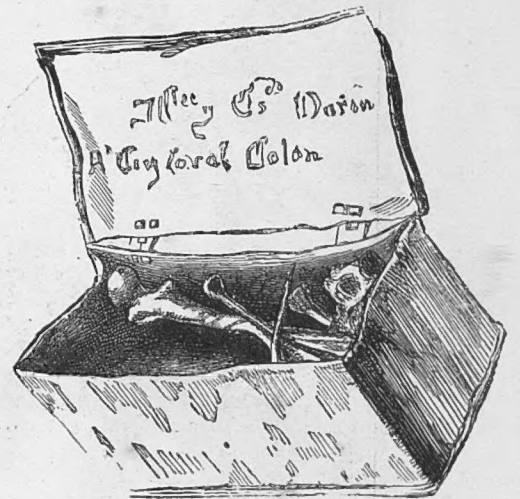 Jllee y Esdo Varon
Dn Cristoval Colon